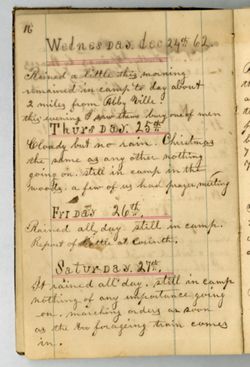 16
Wednesday, dec 24th 62.
Rained a little this morning
remained in camp to day about
2 miles from Abby Ville
this evening I saw them bury one of men
Thursday. 25th
Cloudy but no rain. Christmas
the same as any other nothing
going on. still in camp in the
woods. a few of us had prayer meeting
Friday 26th.
Rained all day. still in camp.
Report of Battle at Corinth.
Saturday. 27th.
It rained all day. still in camp
nothing of any importance going
on. marching orders as soon
as the foraging train comes
in.